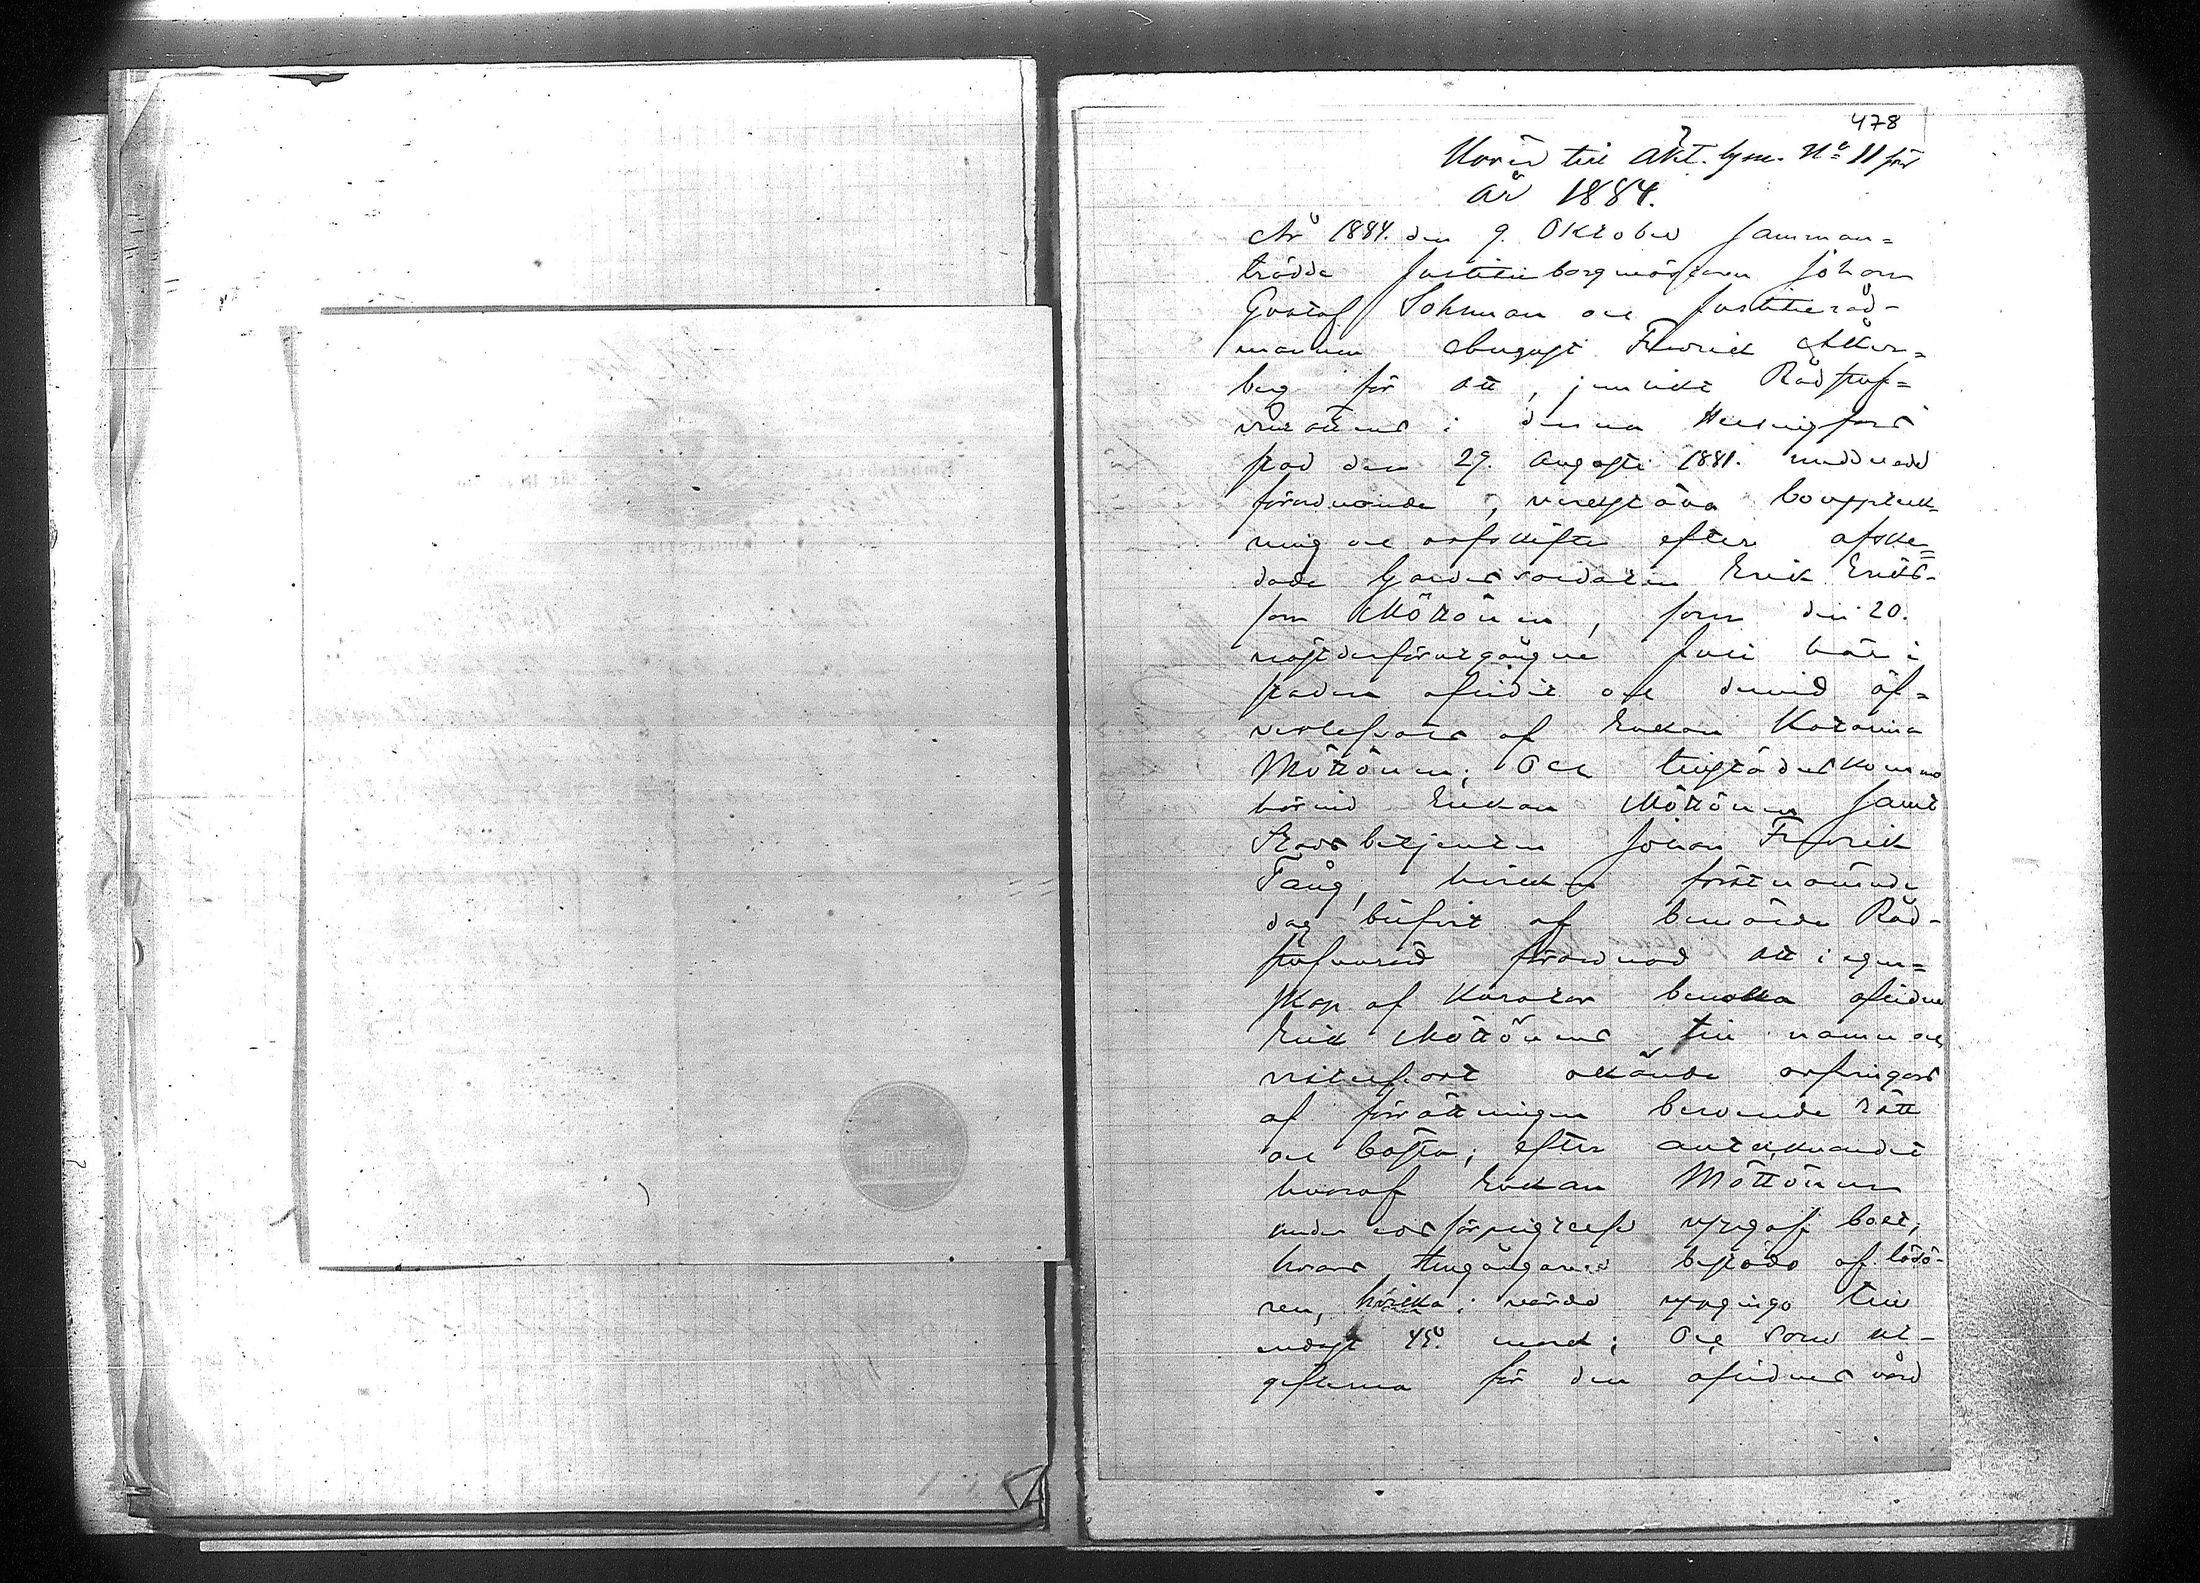 478
till Akt. Nº 11 för
År 1884.
År 1884. den 9. Oktober samman=
trädde Justitiæborgmästaren Johan
Gustaf Sohlman och Justitieråd-
mannen August Fredrik Åker=
berg för att, jemlikt Rådstuf=
vurättens i denna Helsingfors
stad den 29. Augusti 1881. meddelade
förordnande, verkställa bouppteck-
ning och arfskifte efter afske=
dade Gardessoldaten Erik Eriks-
son Möttönen, som den 20.
nästderförutgångne Juli här i
staden aflidit och dervid öf-
verlefvats af Enkan Katarina
Möttönen; Och tillstädeskommo
härvid Enkan Möttönen samt
Stadsbetjenten Johan Fredrik
Tång, hvilken förstnämnde
dag blifvit af bemälde Råd-
stufvurätt förordnad att i egen=
skap af Kurator bevaka aflidne
Erik Möttönens till namn och
vistelseort okände arfvingars
af förrättningen beroende rätt
och bästa; efter antecknandet
hvaraf Enkan Möttönen
under edsförpligtelse uppgaf boet,
hvars tillgångar bestodo af lösö-
ren, hvilka i värde uppgingo till
endast 45. mark; Och som ut-
gifterna för den aflidnes vård